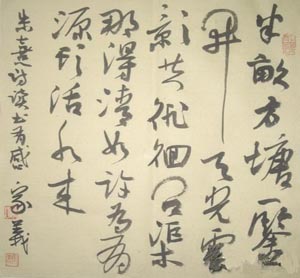 半畝方塘一鑒
开天光雲
影共徘徊问渠
那得清如許為有
源頭活水來
朱熹诗读书有感 義